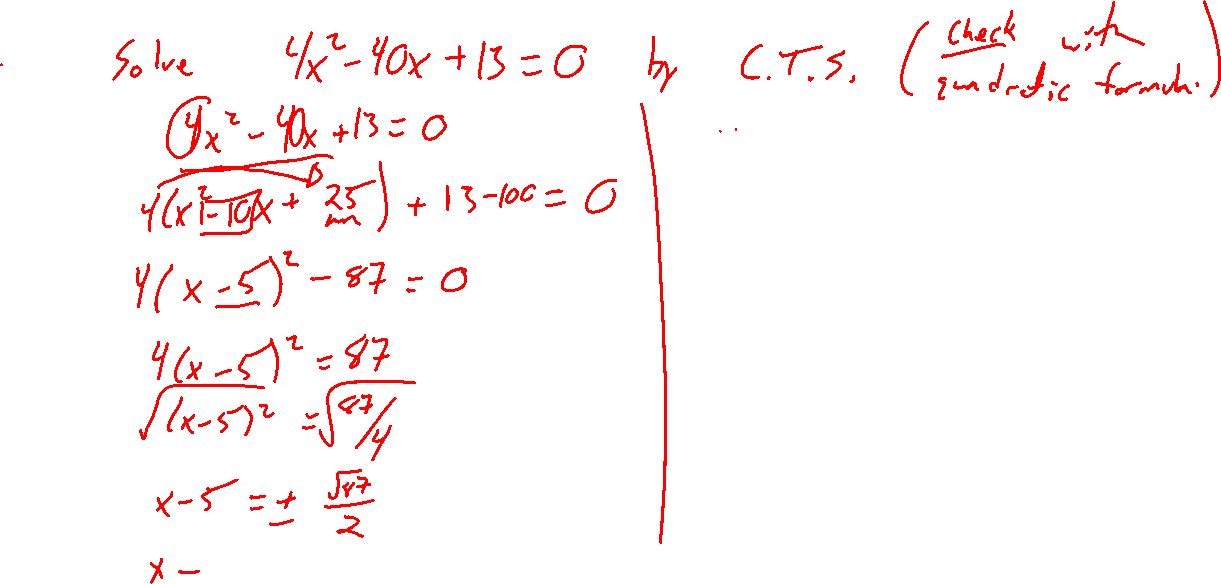 Solve 4x² - 40x + 13 = 0 by C.T.S. (check with quadratic formula.)
4x² - 40x + 13 = 0
4(x² - 10x + 25) + 13 - 100 = 0
4(x - 5)² - 87 = 0
4(x - 5)² = 87
√(x - 5)² = √87/4
x - 5 = ± √87/2
x -